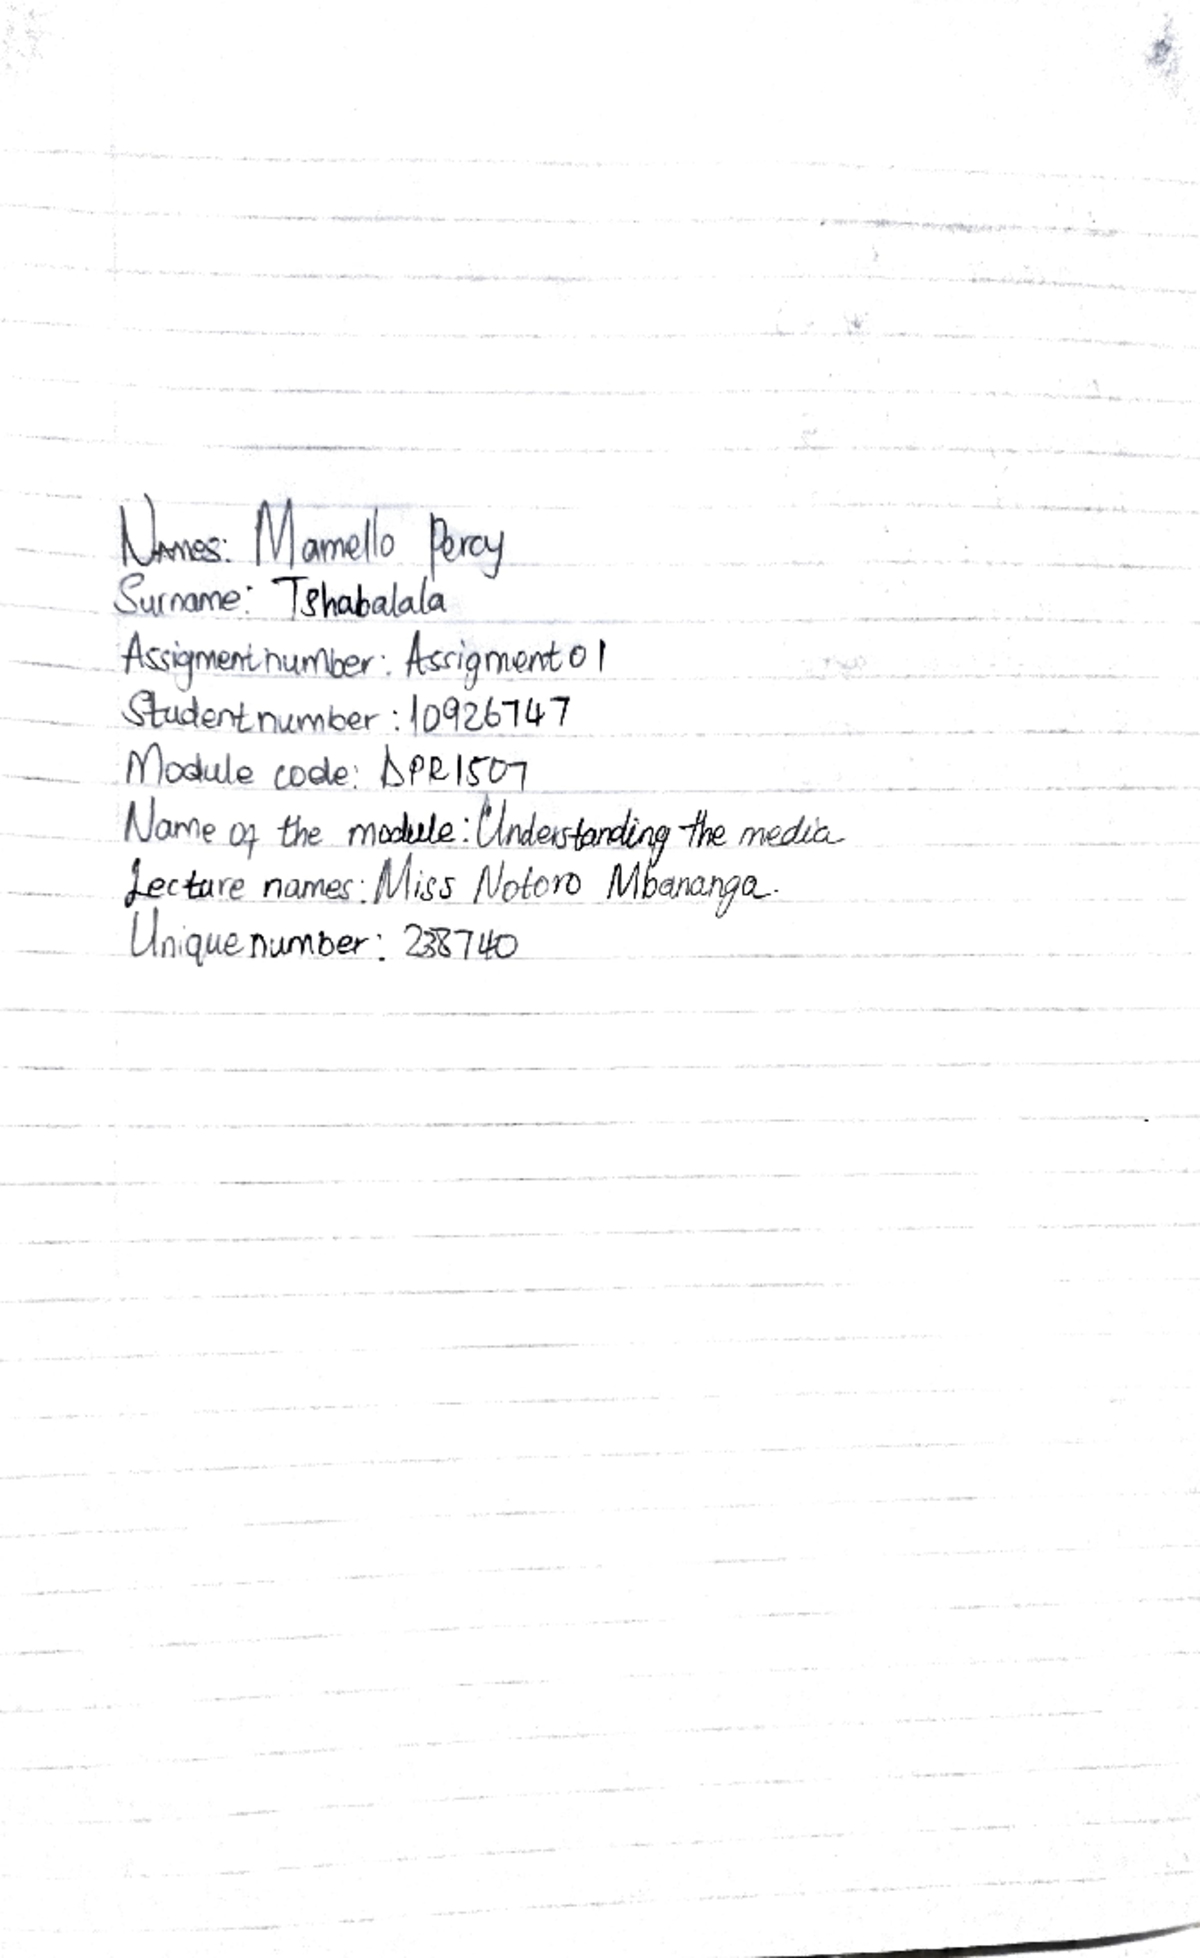 Names: Mamello Percy
Surname: Tshabalala
Assigment number: Assrigment 01
Student number: 10926747
Module code: DPR1507
Name of the module: Understanding the media
Lecture names: Miss Notoro Mbananga.
Unique number: 238740